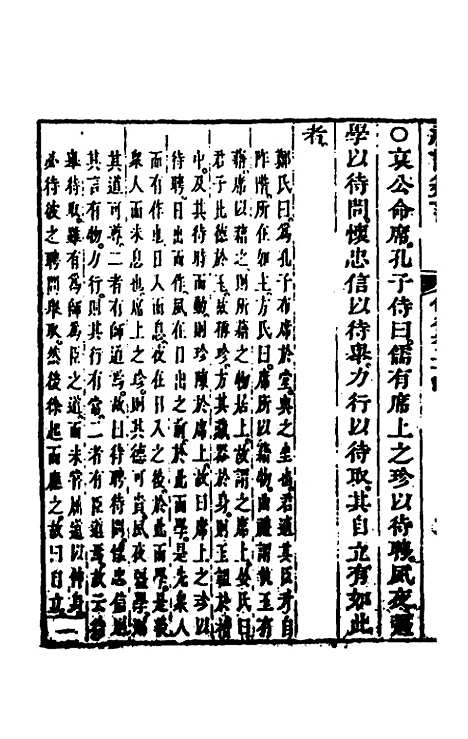 〇哀公命席孔子侍曰儒有席上之珍以待聘夙夜強
學以待問懷忠信以待舉力行以待取其自立有如此
者
鄭氏曰爲孔子布席於堂與之坐也君適其臣升自
阼階所在如主方氏曰席所以藉物曲禮謂執玉有
藉席以藉之則所藉之物居上故謂之席上晏氏曰
君子比德於玉故稱珍方其藏器於身則玉韞於櫝
中及其待時而動則珍陳於席上故曰席上之珍以
待聘日出而作夙在日出之前於此而學是先衆人
而有作日入而息夜在日入之後於此而學是後
衆人而未息也席上之珍則其德可貴夙夜強學
其道可尊二者有師道焉故曰待聘待問懷忠信
其言有物力行則其行有常二者有臣道焉故曰待
舉待取雖有爲師爲臣之道而未嘗屈道以伸身
必待彼之聘問舉取然後徐起而應之故曰自立